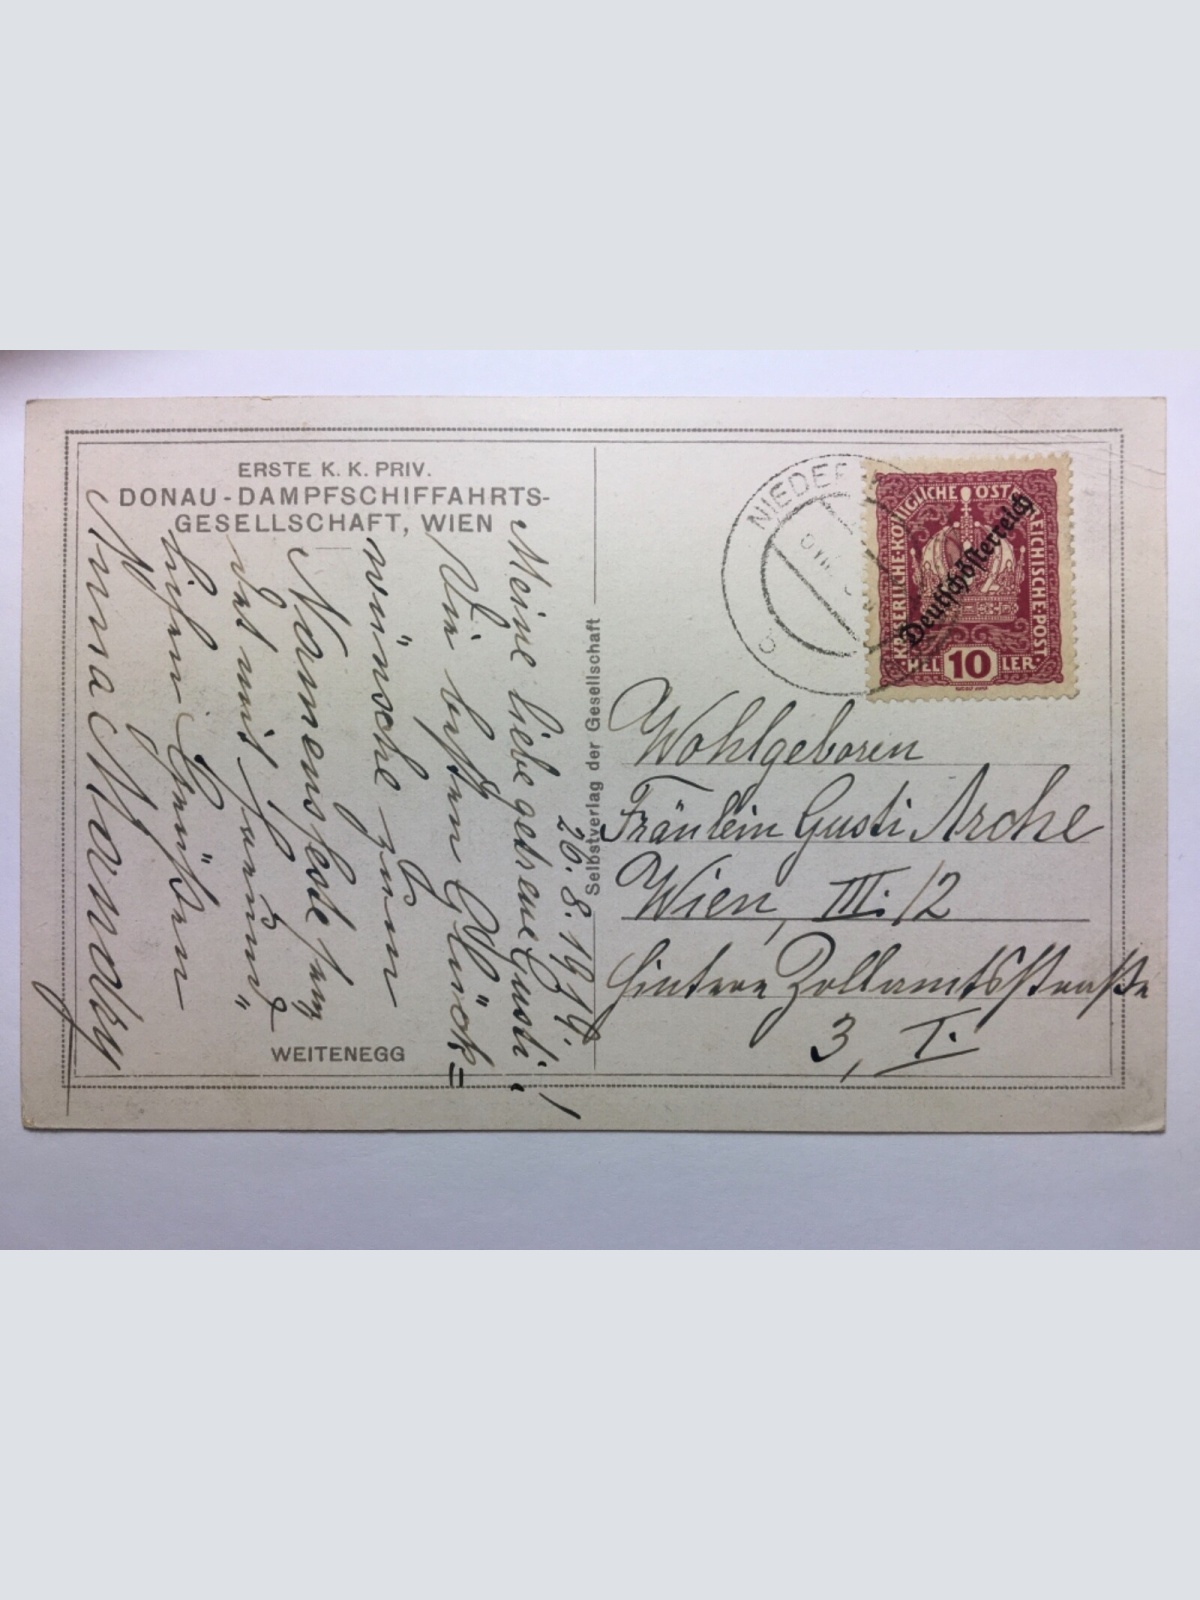 ERSTE K. K. PRIV.
DONAU-DAMPFSCHIFFAHRTS-
GESELLSCHAFT, WIEN
26. 8. 1919.
Meine liebe getreue Gusti!
Die besten Glück=
wünsche zum
Namensfeste
mit
Grüßen
Anna
WEITENEGG
Selbstverlag der Gesellschaft
NIEDER
KAISERLICHE KÖNIGLICHE ÖSTERREICHISCHE POST
Deutschösterreich
HEL 10 LER
Wohlgeboren
Fräulein Gusti Arche
Wien, III./2
Hintere Zollamtsstraße
3, I.